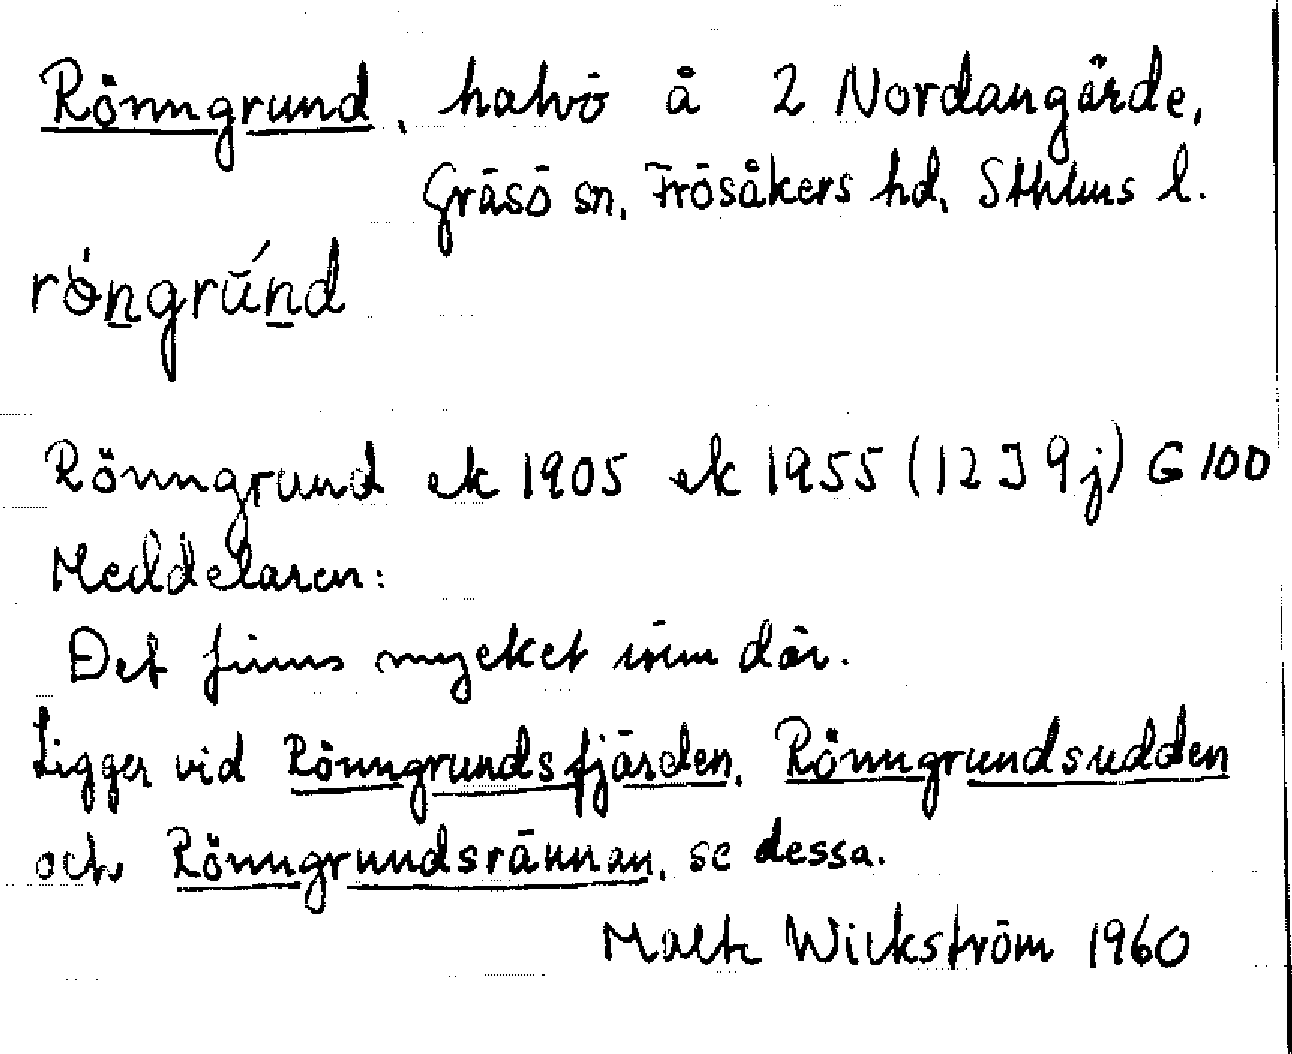 Rönngrund, halvö å 2 Nordangärde,
Gräsö sn, Frösåkers hd, Sthlms l.
röngrund
Rönngrund ek 1905 ek 1955 (12 J 9 j) G 100
Meddelaren:
Det finns mycket rönn där.
Ligger vid Rönngrundsfjärden, Rönngrundsudden
och Rönngrundsrännan, se dessa.
Malte Wickström 1960